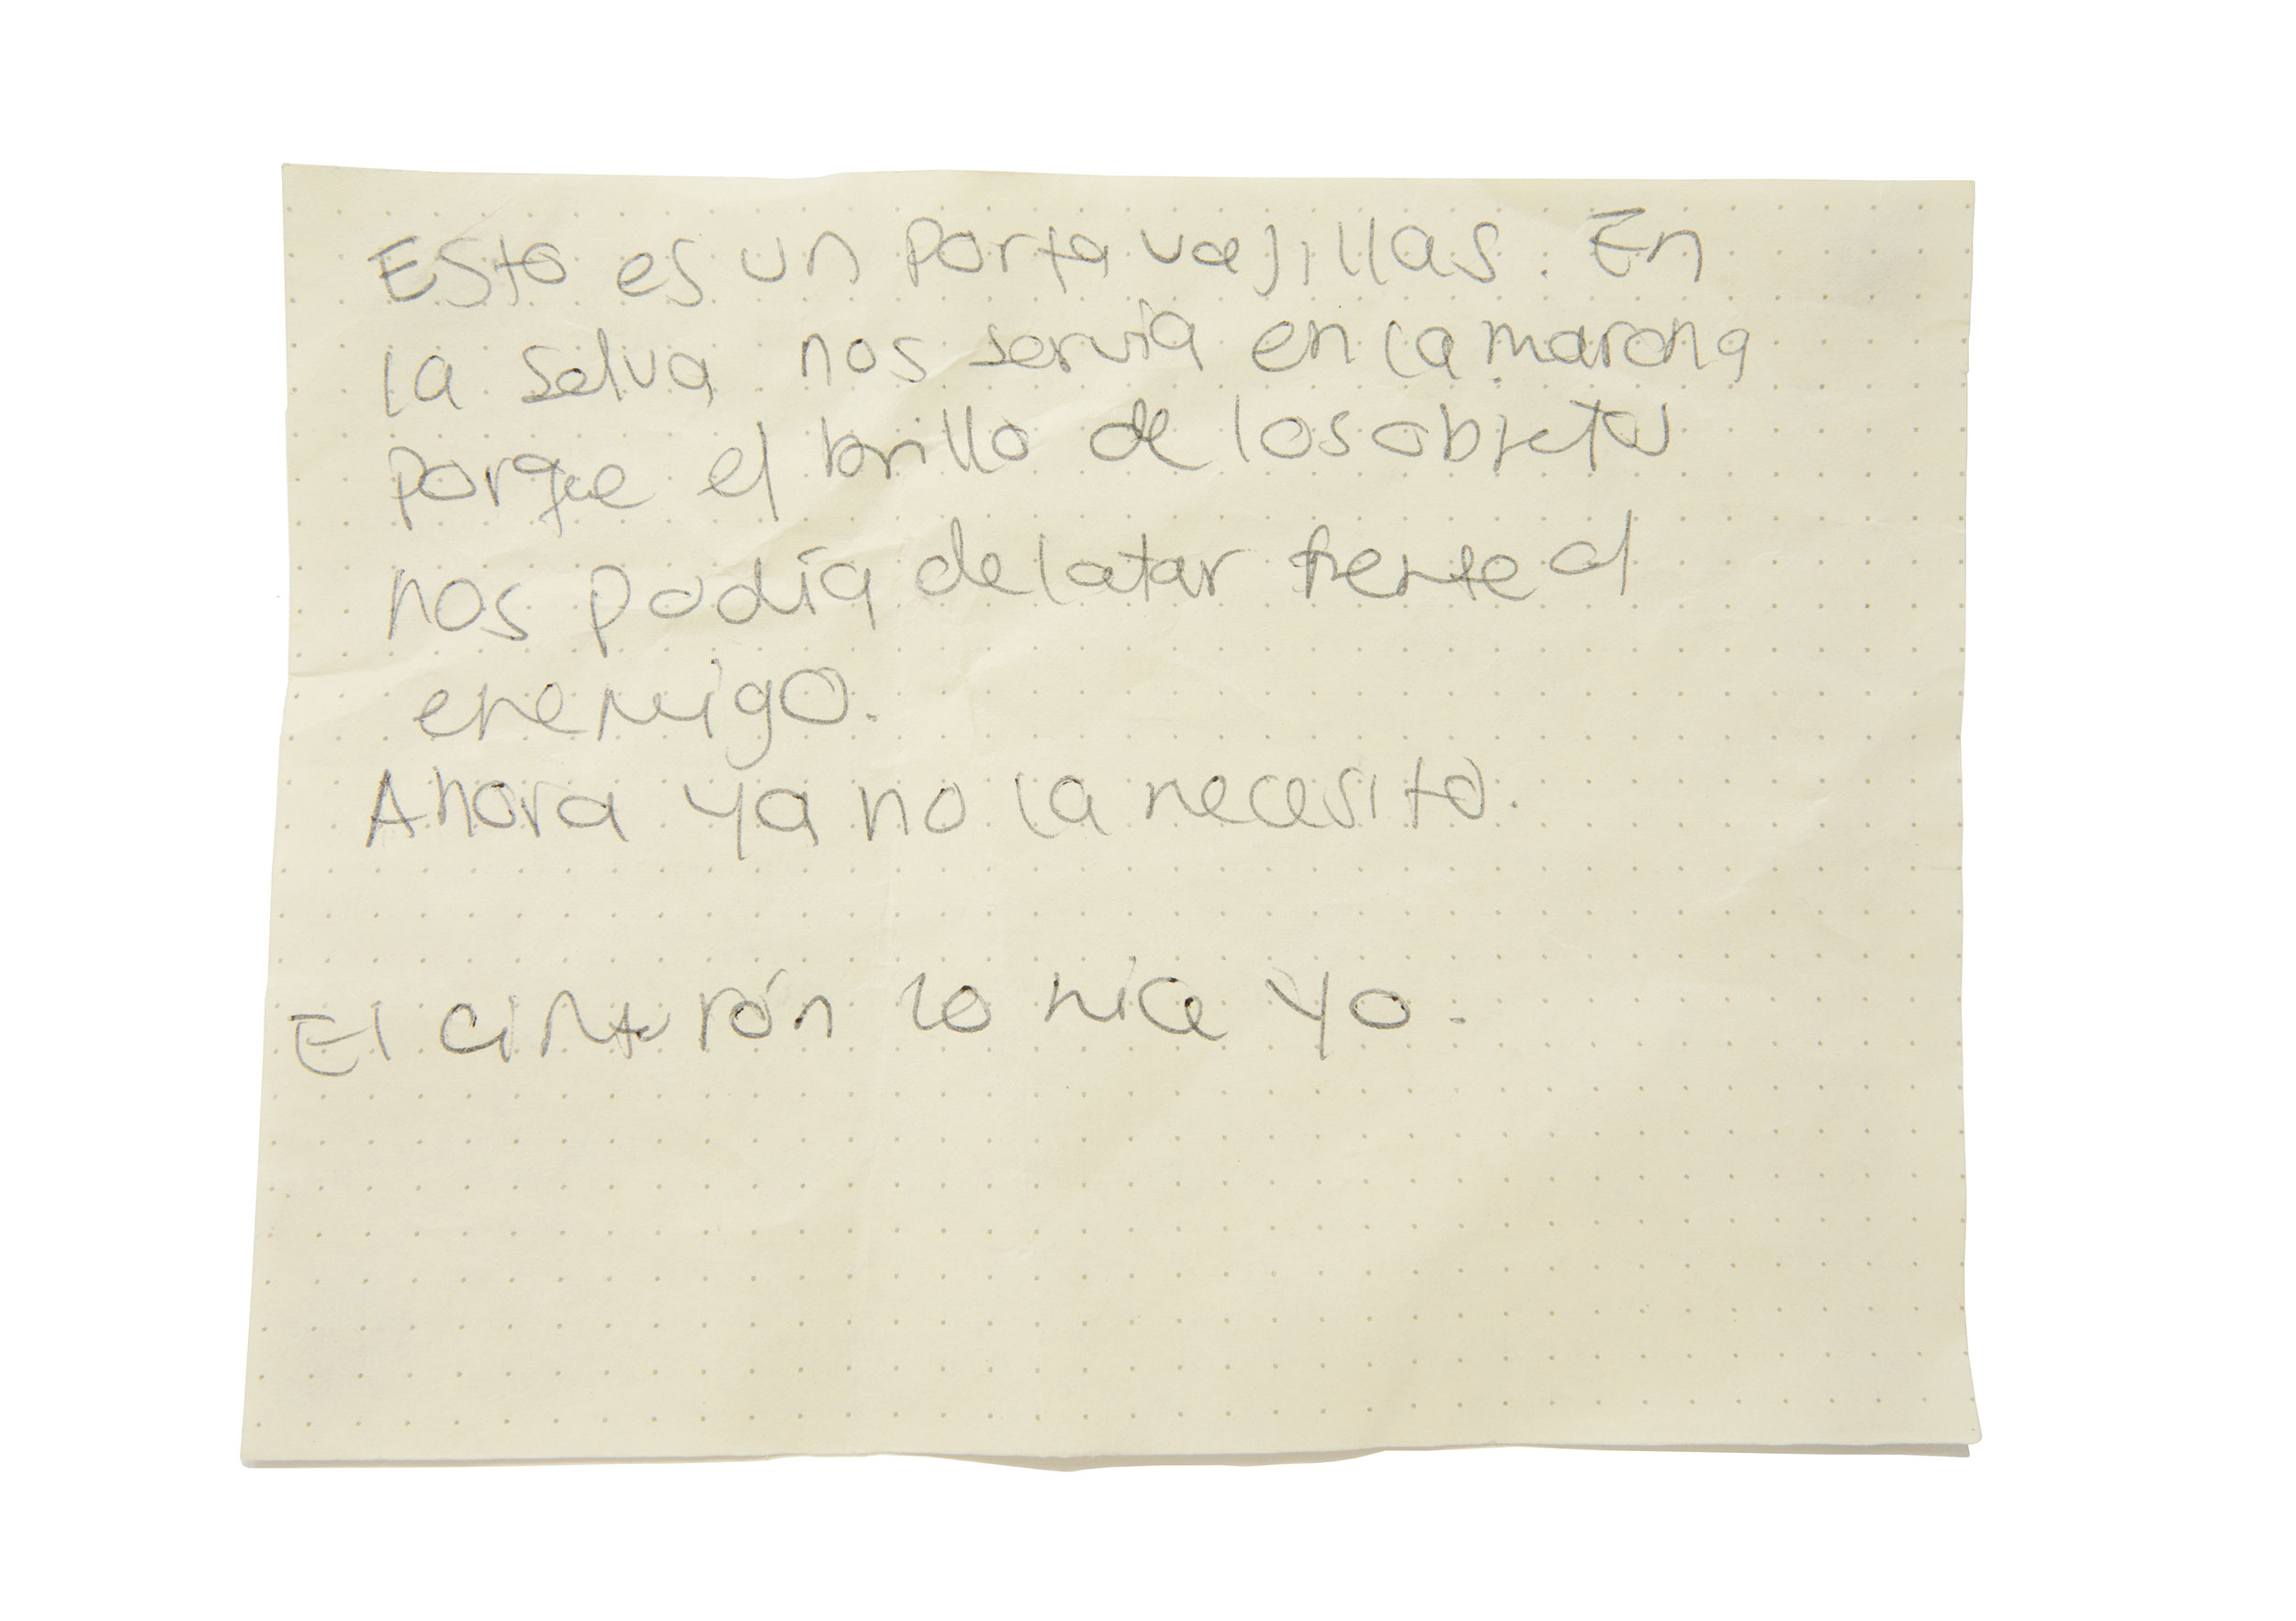 Esto es un porta vajillas. En
la selva nos servía en la marcha
porque el brillo de los objetos
nos podía delatar frente al
enemigo.
Ahora ya no la necesito.
El cinturón lo hice yo.